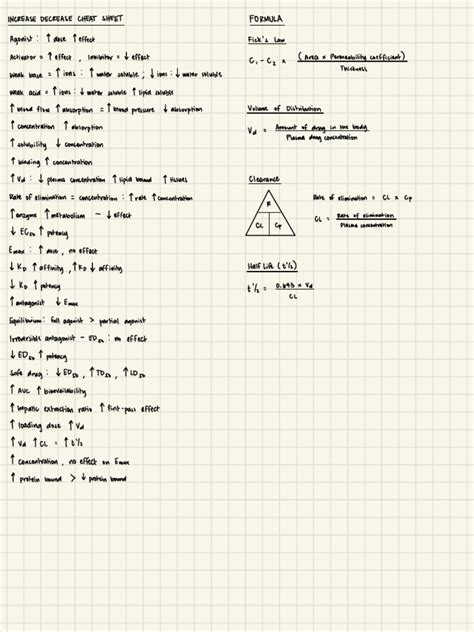 INCREASE DECREASE CHEAT SHEET
Agonist : ↑ dose ↑ effect
Activator = ↑ effect , inhibitor = ↓ effect
Weak base = ↑ ions : ↑ water soluble ; ↓ ions : ↓ water soluble
Weak acid = ↑ ions : ↓ water soluble ↑ lipid soluble
↑ blood flow ↑ absorption = ↑ blood pressure ↓ absorption
↑ concentration ↑ absorption
↑ solubility ↓ concentration
↑ binding ↑ concentration
↑ Vd : ↓ plasma concentration ↑ lipid bound ↑ tissues
Rate of elimination = concentration : ↑ rate ↑ concentration
↑ enzyme ↑ metabolism - ↓ effect
↓ EC50 ↑ potency
Emax : ↑ dose , no effect
↓ KD ↑ affinity , ↑ KD ↓ affinity
↓ KD ↑ potency
↑ antagonist ↓ Emax
Equilibrium : full agonist > partial agonist
Irreversible antagonist - ED50 : no effect
↓ ED50 ↑ potency
Safe drug : ↓ ED50 , ↑ TD50 , ↑ LD50
↑ AUC ↑ bioavailability
↑ hepatic extraction ratio ↑ first-pass effect
↑ loading dose ↑ Vd
↑ Vd ↑ CL = ↑ t½
↑ concentration , no effect on Emax
↑ protein bound > ↓ protein bound
FORMULA
Fick's Law
C1 - C2 × (Area × Permeability coefficient)
Thickness
Volume of Distribution
Vd = Amount of drug in the body
Plasma drug concentration
Clearance
R
CL Cp
Rate of elimination = CL × Cp
CL = Rate of elimination
Plasma concentration
Half Life (t½)
t½ = 0.693 × Vd
CL